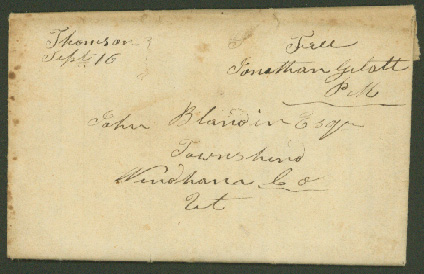 Thomson
Sept 16
Free
Jonathan
P M
John Blandin Esqr
Townshend
Windham Co
Vt